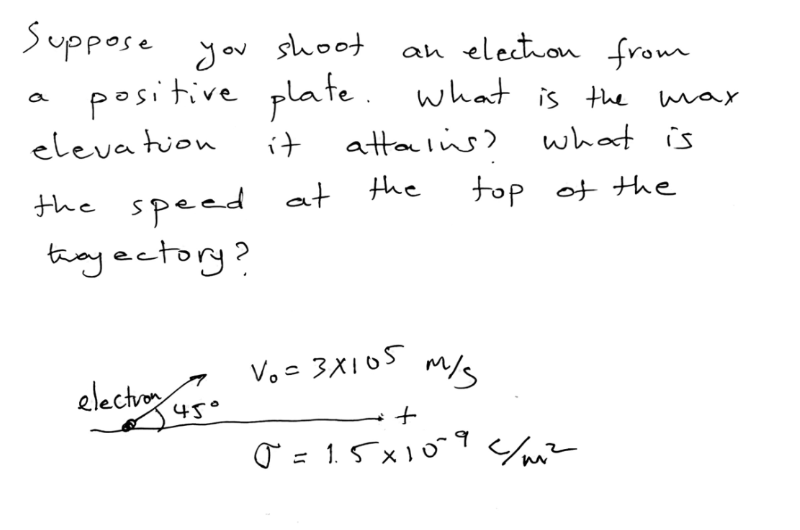 Suppose you shoot an electron from
a positive plate. What is the max
elevation it attains? What is
the speed at the top of the
trajectory?
V₀ = 3×10⁵ m/s
electron
45°
+
σ = 1.5×10⁻⁹ C/m²